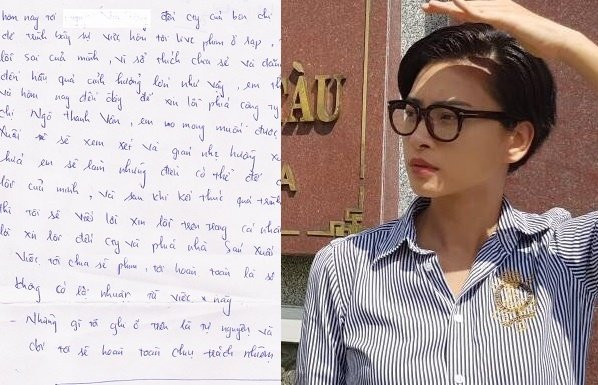 hôm nay tôi đối cey của bạn chị
để trình bày sự việc hôm tôi live phim ở rạp,
lỗi sai của mình, vì sở thích chia sẻ và dẫn
đến hậu quả ảnh hưởng lớn như vậy, em
và hôm nay đến đây để xin lỗi phía công ty
chị Ngô Thanh Vân, em mong muốn được
Xuất sẽ xem xét và giảm nhẹ hướng
hứa em sẽ làm những điều có thể để
lỗi của mình, và sau khi kết thúc quá trình
thì tôi sẽ viết lời xin lỗi trên trang cá nhân
lời xin lỗi đối cty và phía nhà Sản Xuất
Việc tôi chia sẻ phim, tôi hoàn toàn là
không có lợi nhuận từ việc này
- Những gì tôi ghi ở trên là tự nguyện và
tôi sẽ hoàn toàn chịu trách nhiệm
CẦU
A